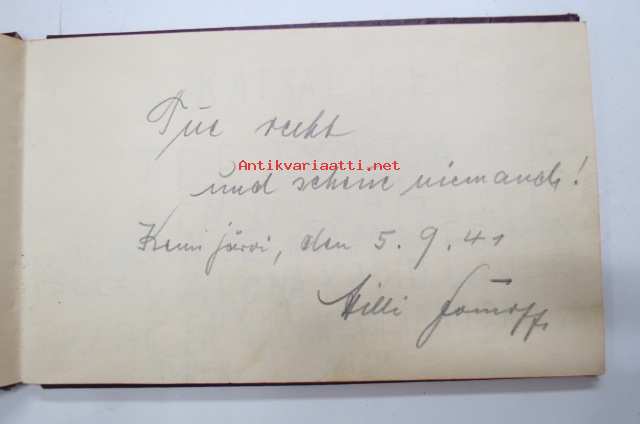 Tue recht
Antikvariaatti.net
und scheue niemand!
Kemijärvi, den 5.9.41
Willi